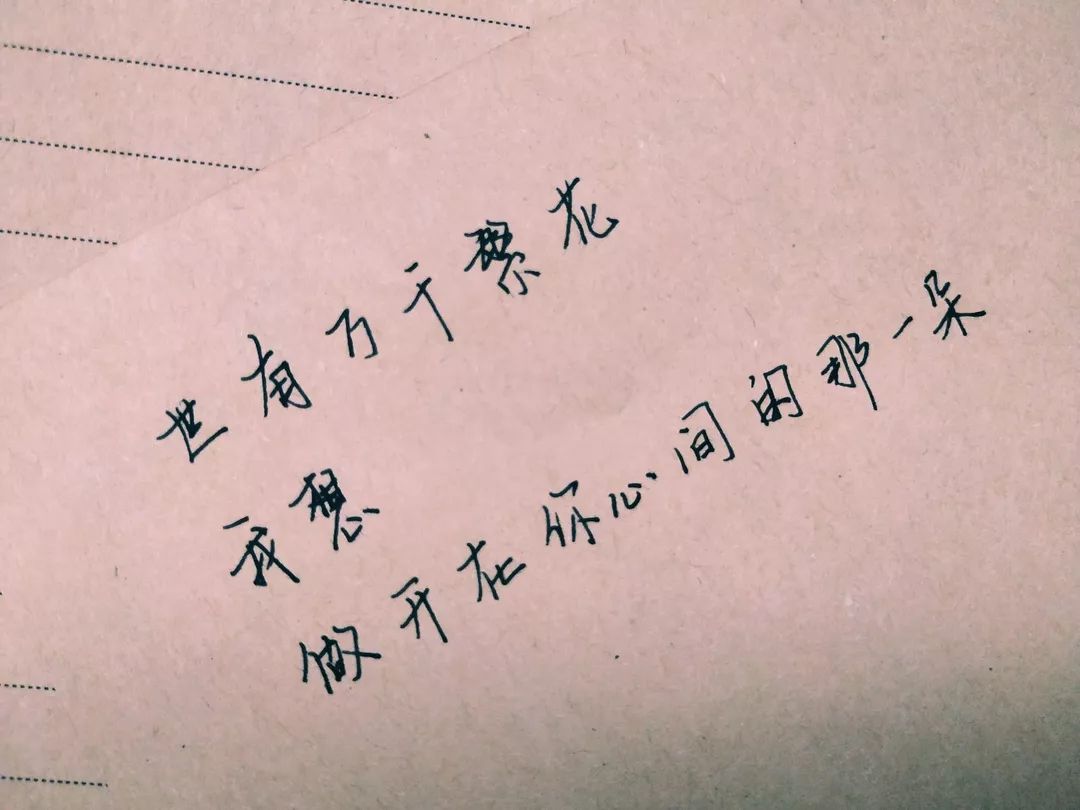 世有万千繁花
我想
做开在你心间的那一朵